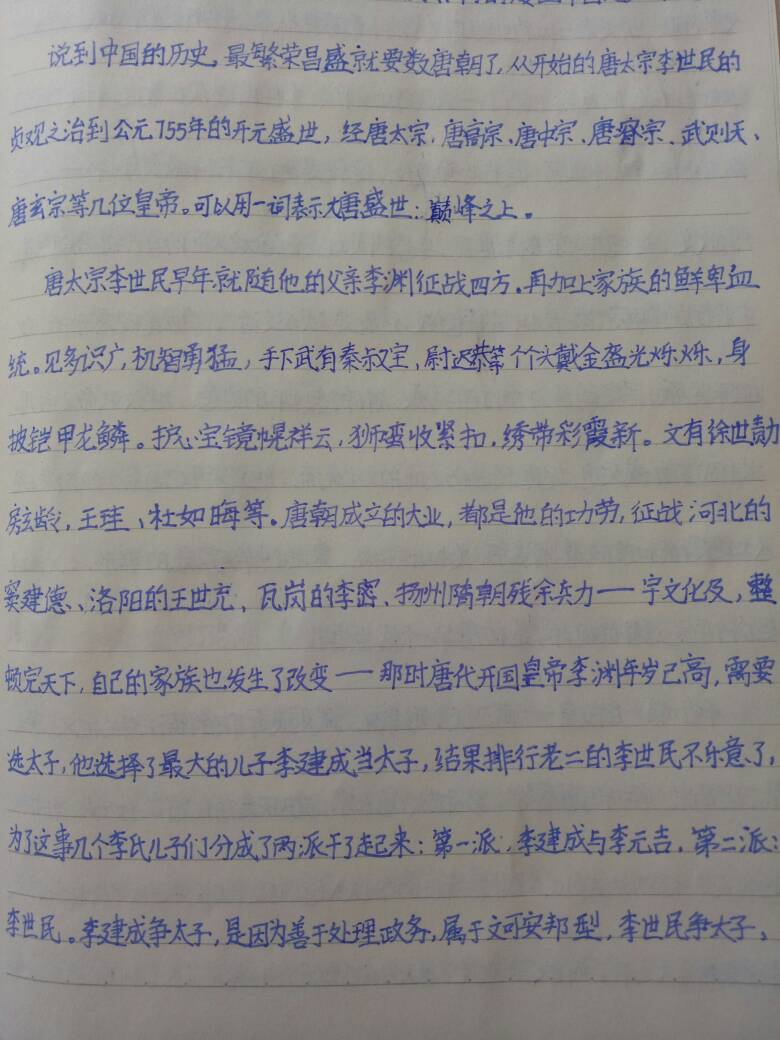 说到中国的历史,最繁荣昌盛就要数唐朝了,从开始的唐太宗李世民的
贞观之治到公元755年的开元盛世,经唐太宗、唐高宗、唐中宗、唐睿宗、武则天、
唐玄宗等几位皇帝。可以用一词表示大唐盛世:巅峰之上。
唐太宗李世民早年就随他的父亲李渊征战四方。再加上家族的鲜卑血
统。见多识广,机智勇猛,手下武有秦叔宝、尉迟恭等个个头戴金盔光烁烁,身
披铠甲龙鳞。护心宝镜幌祥云,狮蛮收紧扣,绣带彩霞新。文有徐世勣
房玄龄,王珪、杜如晦等。唐朝成立的大业,都是他的功劳,征战河北的
窦建德、洛阳的王世充、瓦岗的李密、扬州隋朝残余兵力——宇文化及,整
顿完天下,自己的家族也发生了改变——那时唐代开国皇帝李渊年岁已高,需要
选太子,他选择了最大的儿子李建成当太子,结果排行老二的李世民不乐意了,
为了这事几个李氏儿子们分成了两派干了起来:第一派:李建成与李元吉,第二派:
李世民。李建成争太子,是因为善于处理政务,属于文可安邦型,李世民争太子,